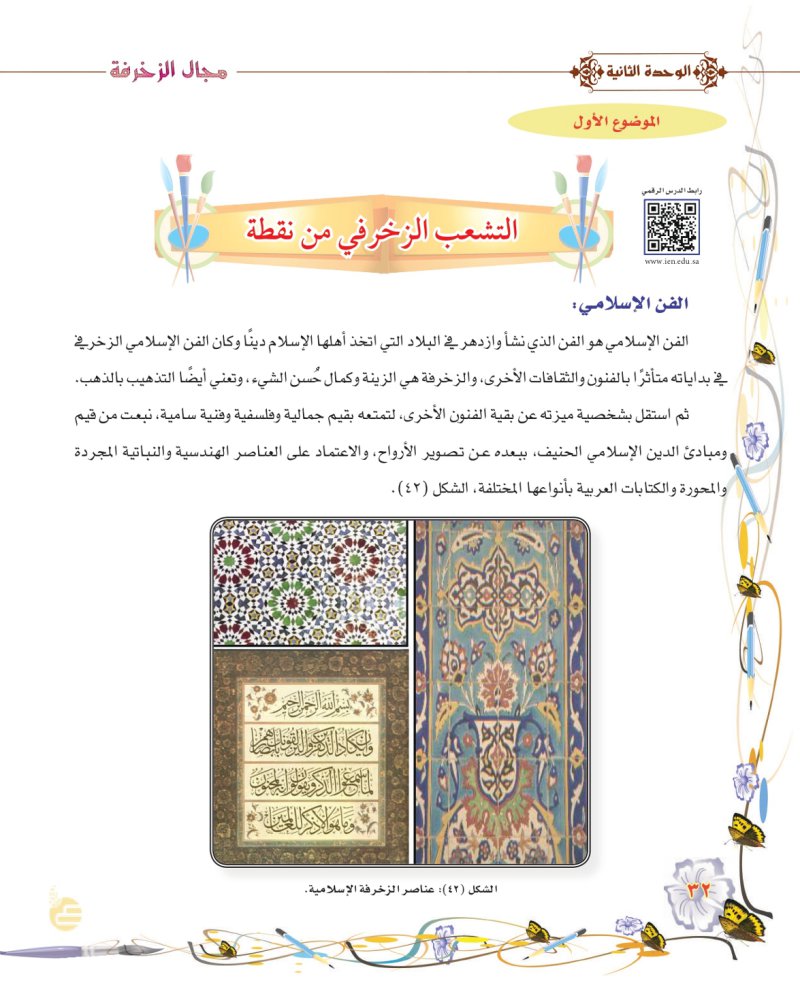 الوحدة الثانية
مجال الزخرفة
الموضوع الأول
رابط الدرس الرقمي
www.ien.edu.sa
التشعب الزخرفي من نقطة
الفن الإسلامي:
الفن الإسلامي هو الفن الذي نشأ وازدهر في البلاد التي اتخذ أهلها الإسلام دينًا وكان الفن الإسلامي الزخرفي
في بداياته متأثرًا بالفنون والثقافات الأخرى، والزخرفة هي الزينة وكمال حُسن الشيء، وتعني أيضًا التذهيب بالذهب.
ثم استقل بشخصية ميزته عن بقية الفنون الأخرى، لتمتعه بقيم جمالية وفلسفية وفنية سامية، نبعت من قيم
ومبادئ الدين الإسلامي الحنيف، ببعده عن تصوير الأرواح، والاعتماد على العناصر الهندسية والنباتية المجردة
والمحورة والكتابات العربية بأنواعها المختلفة، الشكل (٤٢).
بسم الله الرحمن الرحيم
وإن يكاد الذين كفروا ليزلقونك بأبصارهم
لما سمعوا الذكر ويقولون إنه لمجنون
وما هو إلا ذكر للعالمين
الشكل (٤٢): عناصر الزخرفة الإسلامية.
٣٢